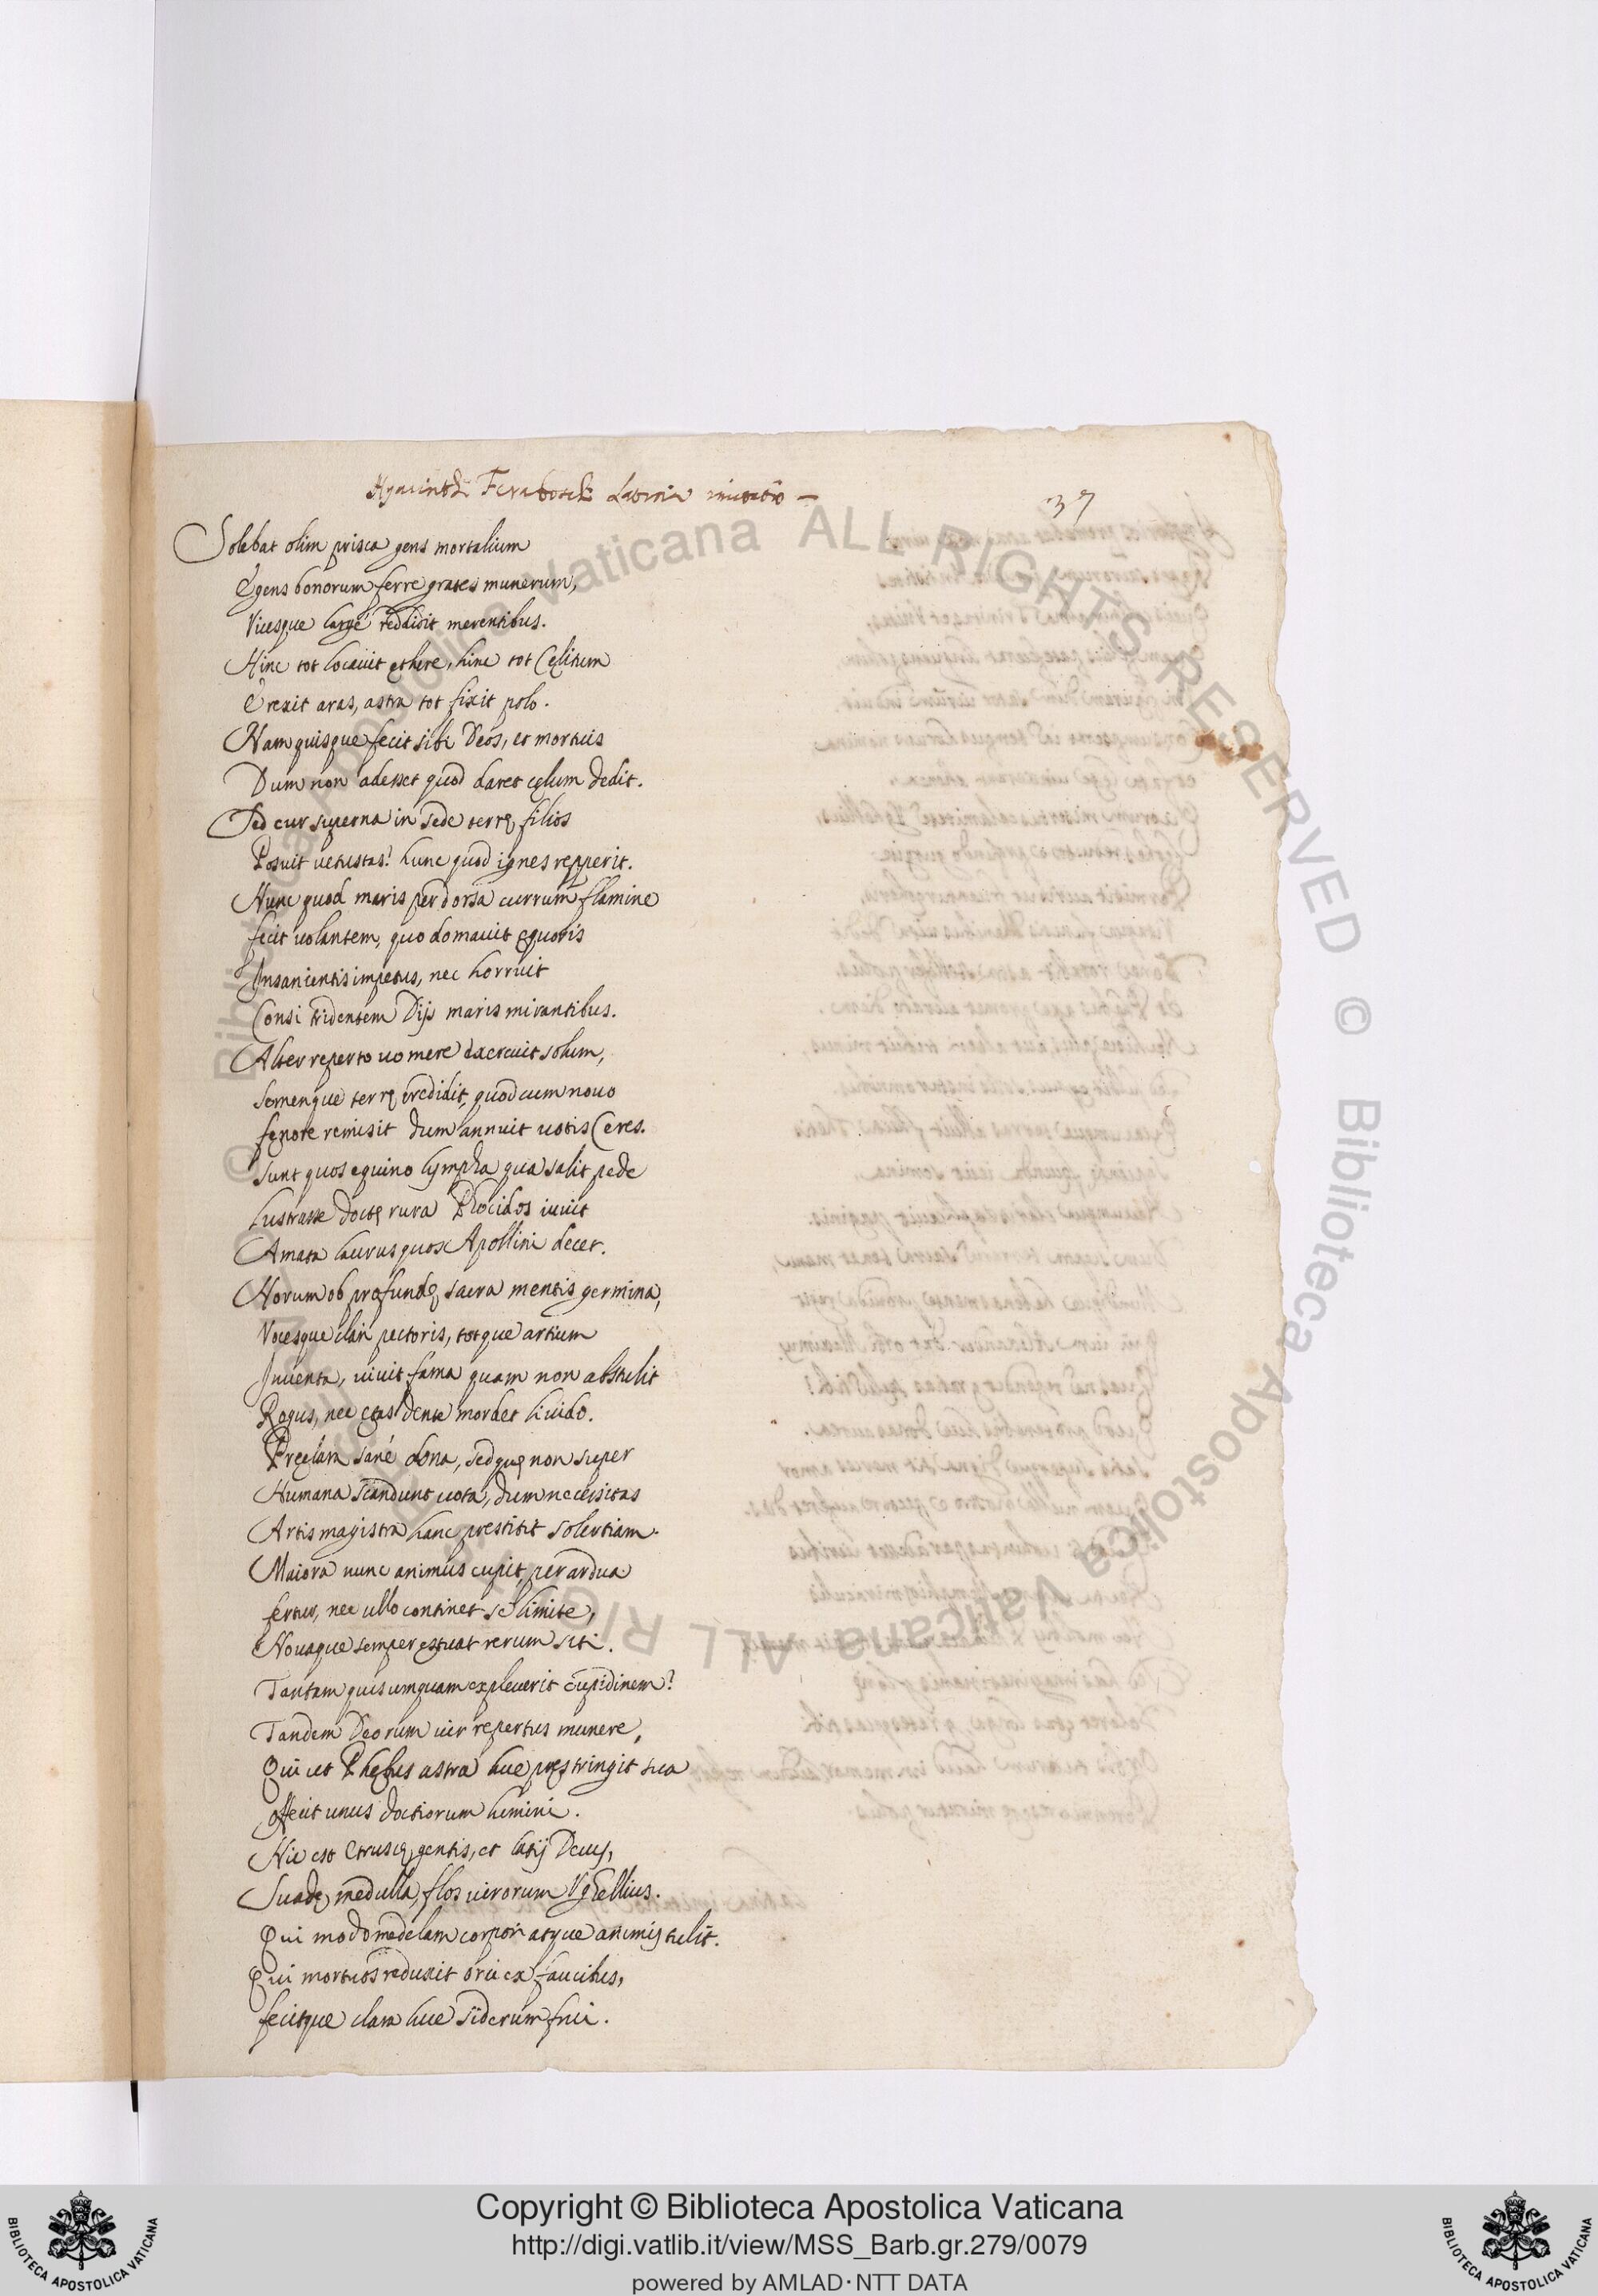 Hyacinthi Feraboschi Latina imitatio —
37
Solebat olim prisca gens mortalium
Egens bonorum ferre grates munerum,
Vicesque largè reddidit merentibus.
Hinc tot locavit ęthere, hinc tot Cęlitum
Erexit aras, astra tot fixit polo.
Nam quisque fecit sibi Deos, et mortuis
Dum non adesset quod daret cęlum dedit.
Sed cur superna in sede terrę filios
Posuit vetustas? hunc quod ignes repperit.
Hunc quod maris per dorsa currum flamine
fecit volantem, quo domavit ęquoris
Insanientis impetus, nec horruit
Consi tridentem Dijs maris mirantibus.
Alter reperto vomere exercuit solum,
Semenque terrę credidit, quod cum novo
fęnore remisit dum annuit votis Ceres.
Sunt quos equino lympha qua salit pede
Lustrasse doctę rura Phocidos iuvit
Amata laurus quos Apollini decet.
Horum ob profundę sacra mentis germina,
Vocesque clari pectoris, totque artium
Inventa, vivit fama quam non abstulit
Rogus, nec ętas dente mordet livido.
Pręclara sanè dona, sed quę non super
Humana scandunt vota, dum necessitas
Artis magistra hanc prestitit solertiam.
Maiora nunc animus cupit, per ardua
fertur, nec ullo continet se limite,
Novaque semper ęstuat rerum siti.
Tantam quis umquam expleverit cupidinem?
Tandem Deorum vir repertus munere,
Qui ut Phębus astra luce pręstringit sua
Offecit unus doctiorum lumini.
Hic est Etruscę gentis, et Latij Decus,
Suadę medulla, flos virorum Vghellius.
Qui modo medelam corpori atque animis tulit.
Qui mortuos reduxit orci ex faucibus,
fecitque clara luce siderum frui.
© Biblioteca Apostolica Vaticana ALL RIGHTS RESERVED © Biblioteca Apostolica Vaticana ALL RIGHTS RESERVED
Copyright © Biblioteca Apostolica Vaticana
http://digi.vatlib.it/view/MSS_Barb.gr.279/0079
powered by AMLAD·NTT DATA
BIBLIOTECA APOSTOLICA VATICANA
BIBLIOTECA APOSTOLICA VATICANA